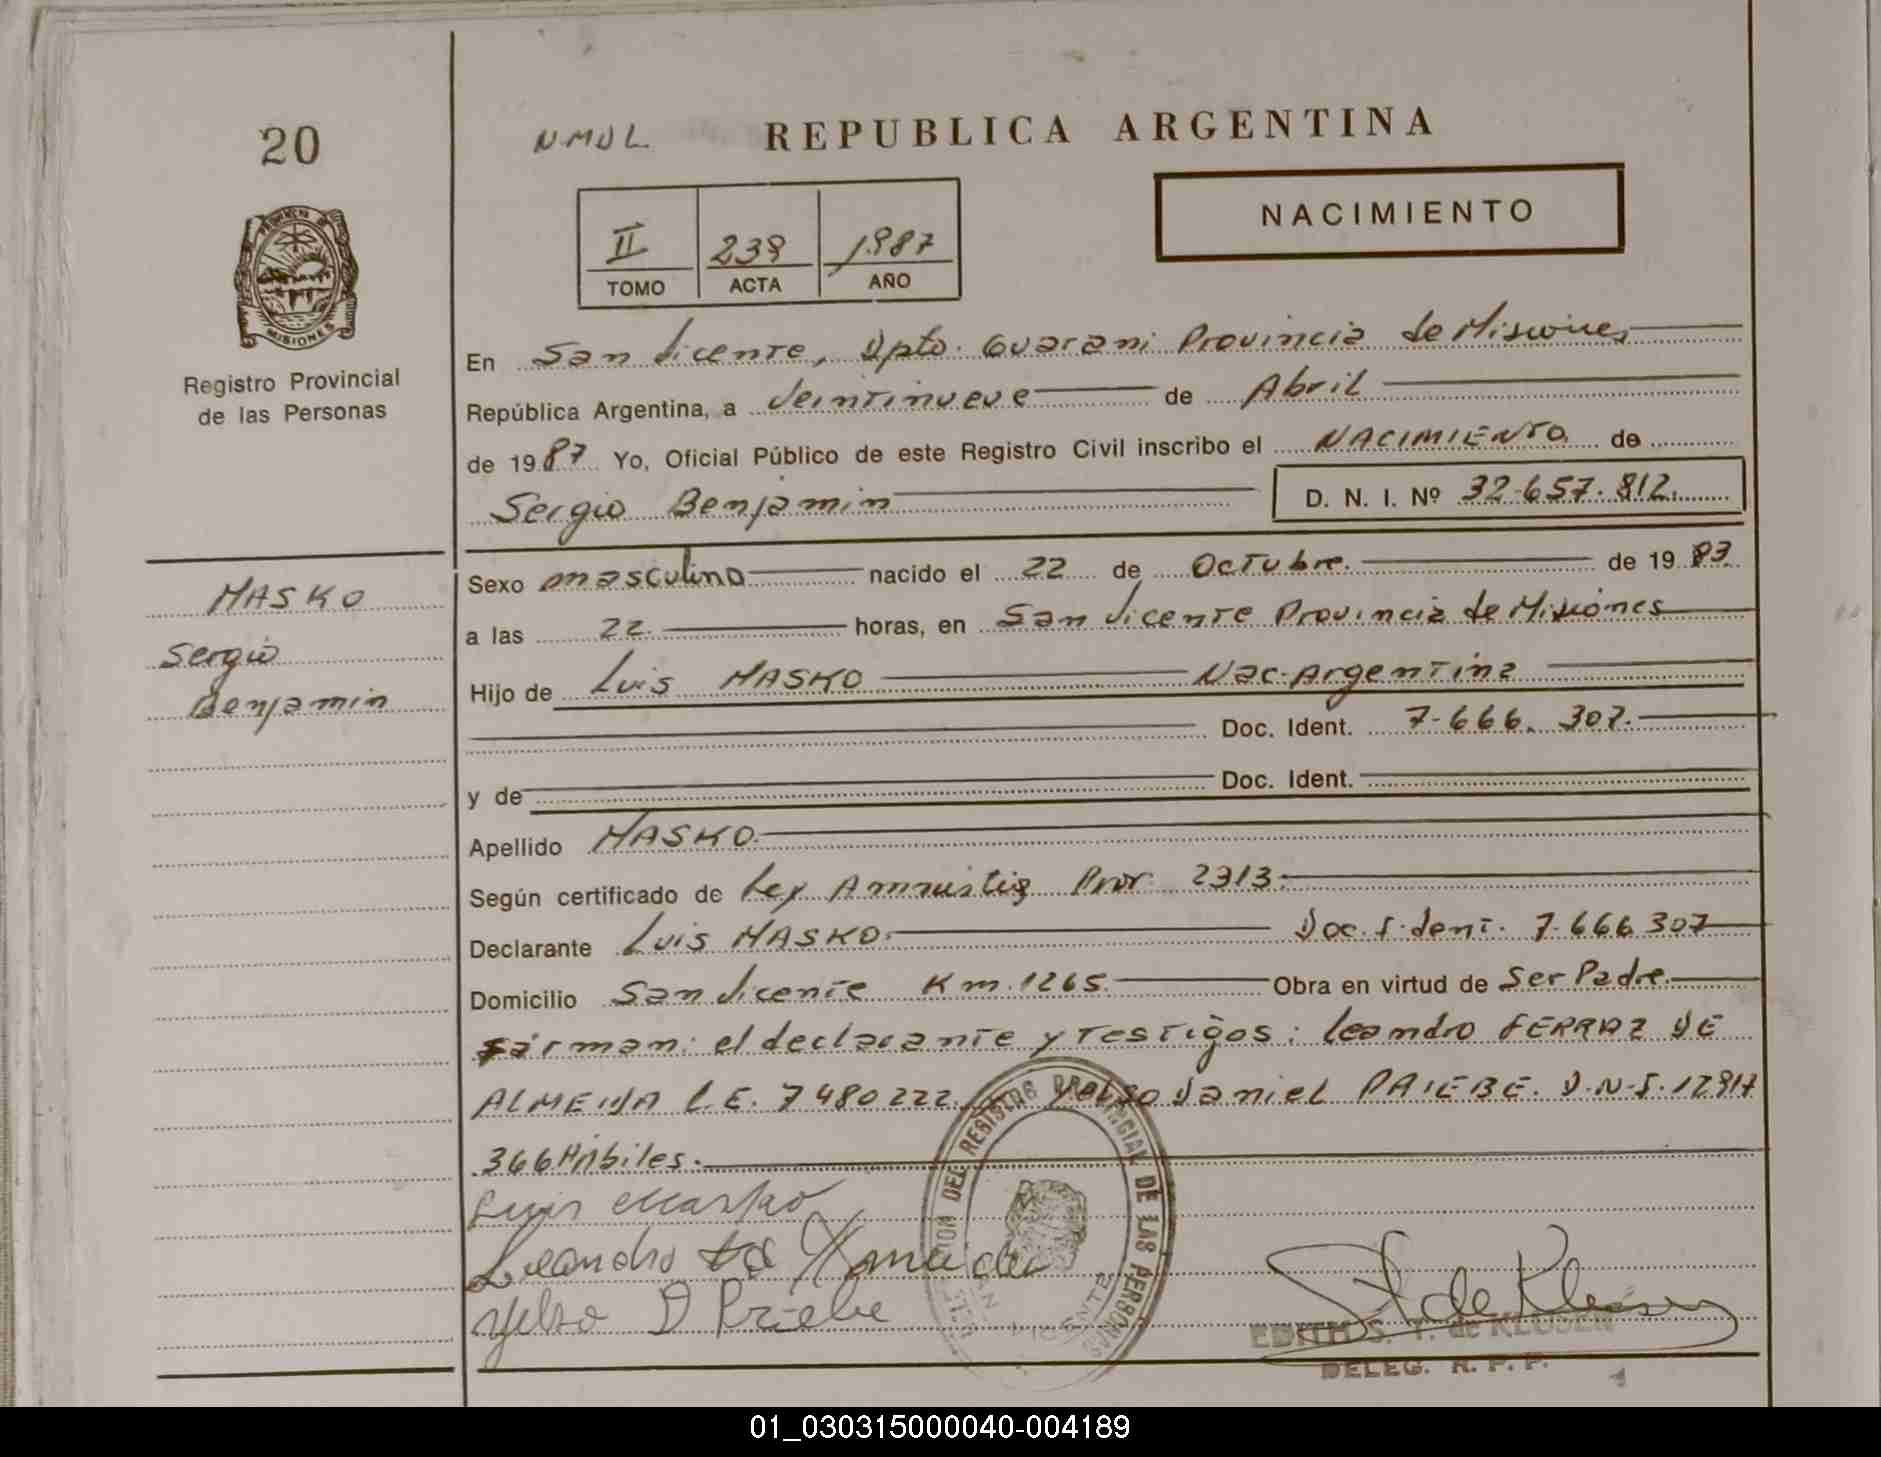 20
N.M.U.L.
REPUBLICA ARGENTINA
NACIMIENTO
II 239 1987
TOMO ACTA AÑO
PROVINCIA DE
MISIONES
Registro Provincial
de las Personas
En San Vicente, Dpto. Guarani Provincia de Misiones
República Argentina, a Veintinueve de Abril
de 1987 Yo, Oficial Público de este Registro Civil inscribo el NACIMIENTO de
Sergio Benjamin D. N. I. Nº 32.657.812.
MASKO
Sergio
Benjamin
Sexo masculino nacido el 22 de Octubre. de 1983.
a las 22. horas, en San Vicente Provincia de Misiones
Hijo de Luis MASKO Nac. Argentina
Doc. Ident. 7.666.307.
y de Doc. Ident.
Apellido MASKO.
Según certificado de Ley Amnistia Prov. 2313.
Declarante Luis MASKO. Doc. Ident. 7.666.307
Domicilio San Vicente Km. 1265. Obra en virtud de Ser Padre.
Firman: el declarante y Testigos: Leandro FERRAZ DE
ALMEIDA L.E. 7480222. Daniel D.N.I. 12.917
366 Hábiles.
Luis Masko
Leandro
D Priebe
DEL REGISTRO PROVINCIAL DE LAS PERSONAS
SAN VICENTE
EDITH S. T. de KLUSEN
DELEG. R. P. P.
1
01_030315000040-004189